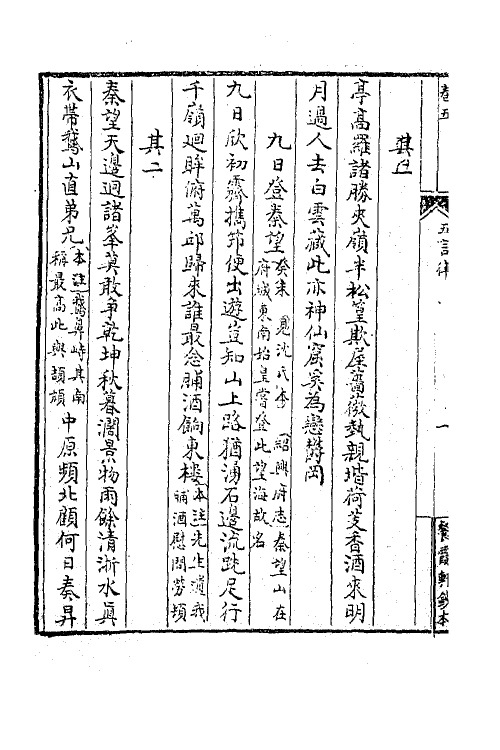 卷五
五言律
一
餐霞軒鈔本
其
亭高羅諸勝夾嶺半松篁欺崖薔薇熱親堦荷芰香酒來明
月過人去白雲藏此亦神仙窟奚為戀欝岡
九日登秦望癸未 見沈氏本 紹興府志秦望山在
府城東南始皇嘗登此望海故名
九日欣初霽攜筇便出遊豈知山上路猶湧石邊流跣足行
千嶺迴眸俯萬邱歸來誰最念脯酒餉東樓本注先生遺我
脯酒慰問勞頓
其二
秦望天邊迥諸峯莫敢爭乾坤秋暮濶景物雨餘清浙水眞
衣帶鵞山直弟兄本注鵞鼻峙其南
稱最高此與頡頏中原頻北顧何日奏昇